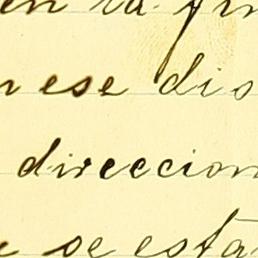 en la fin
ese dis
direccion
se esta